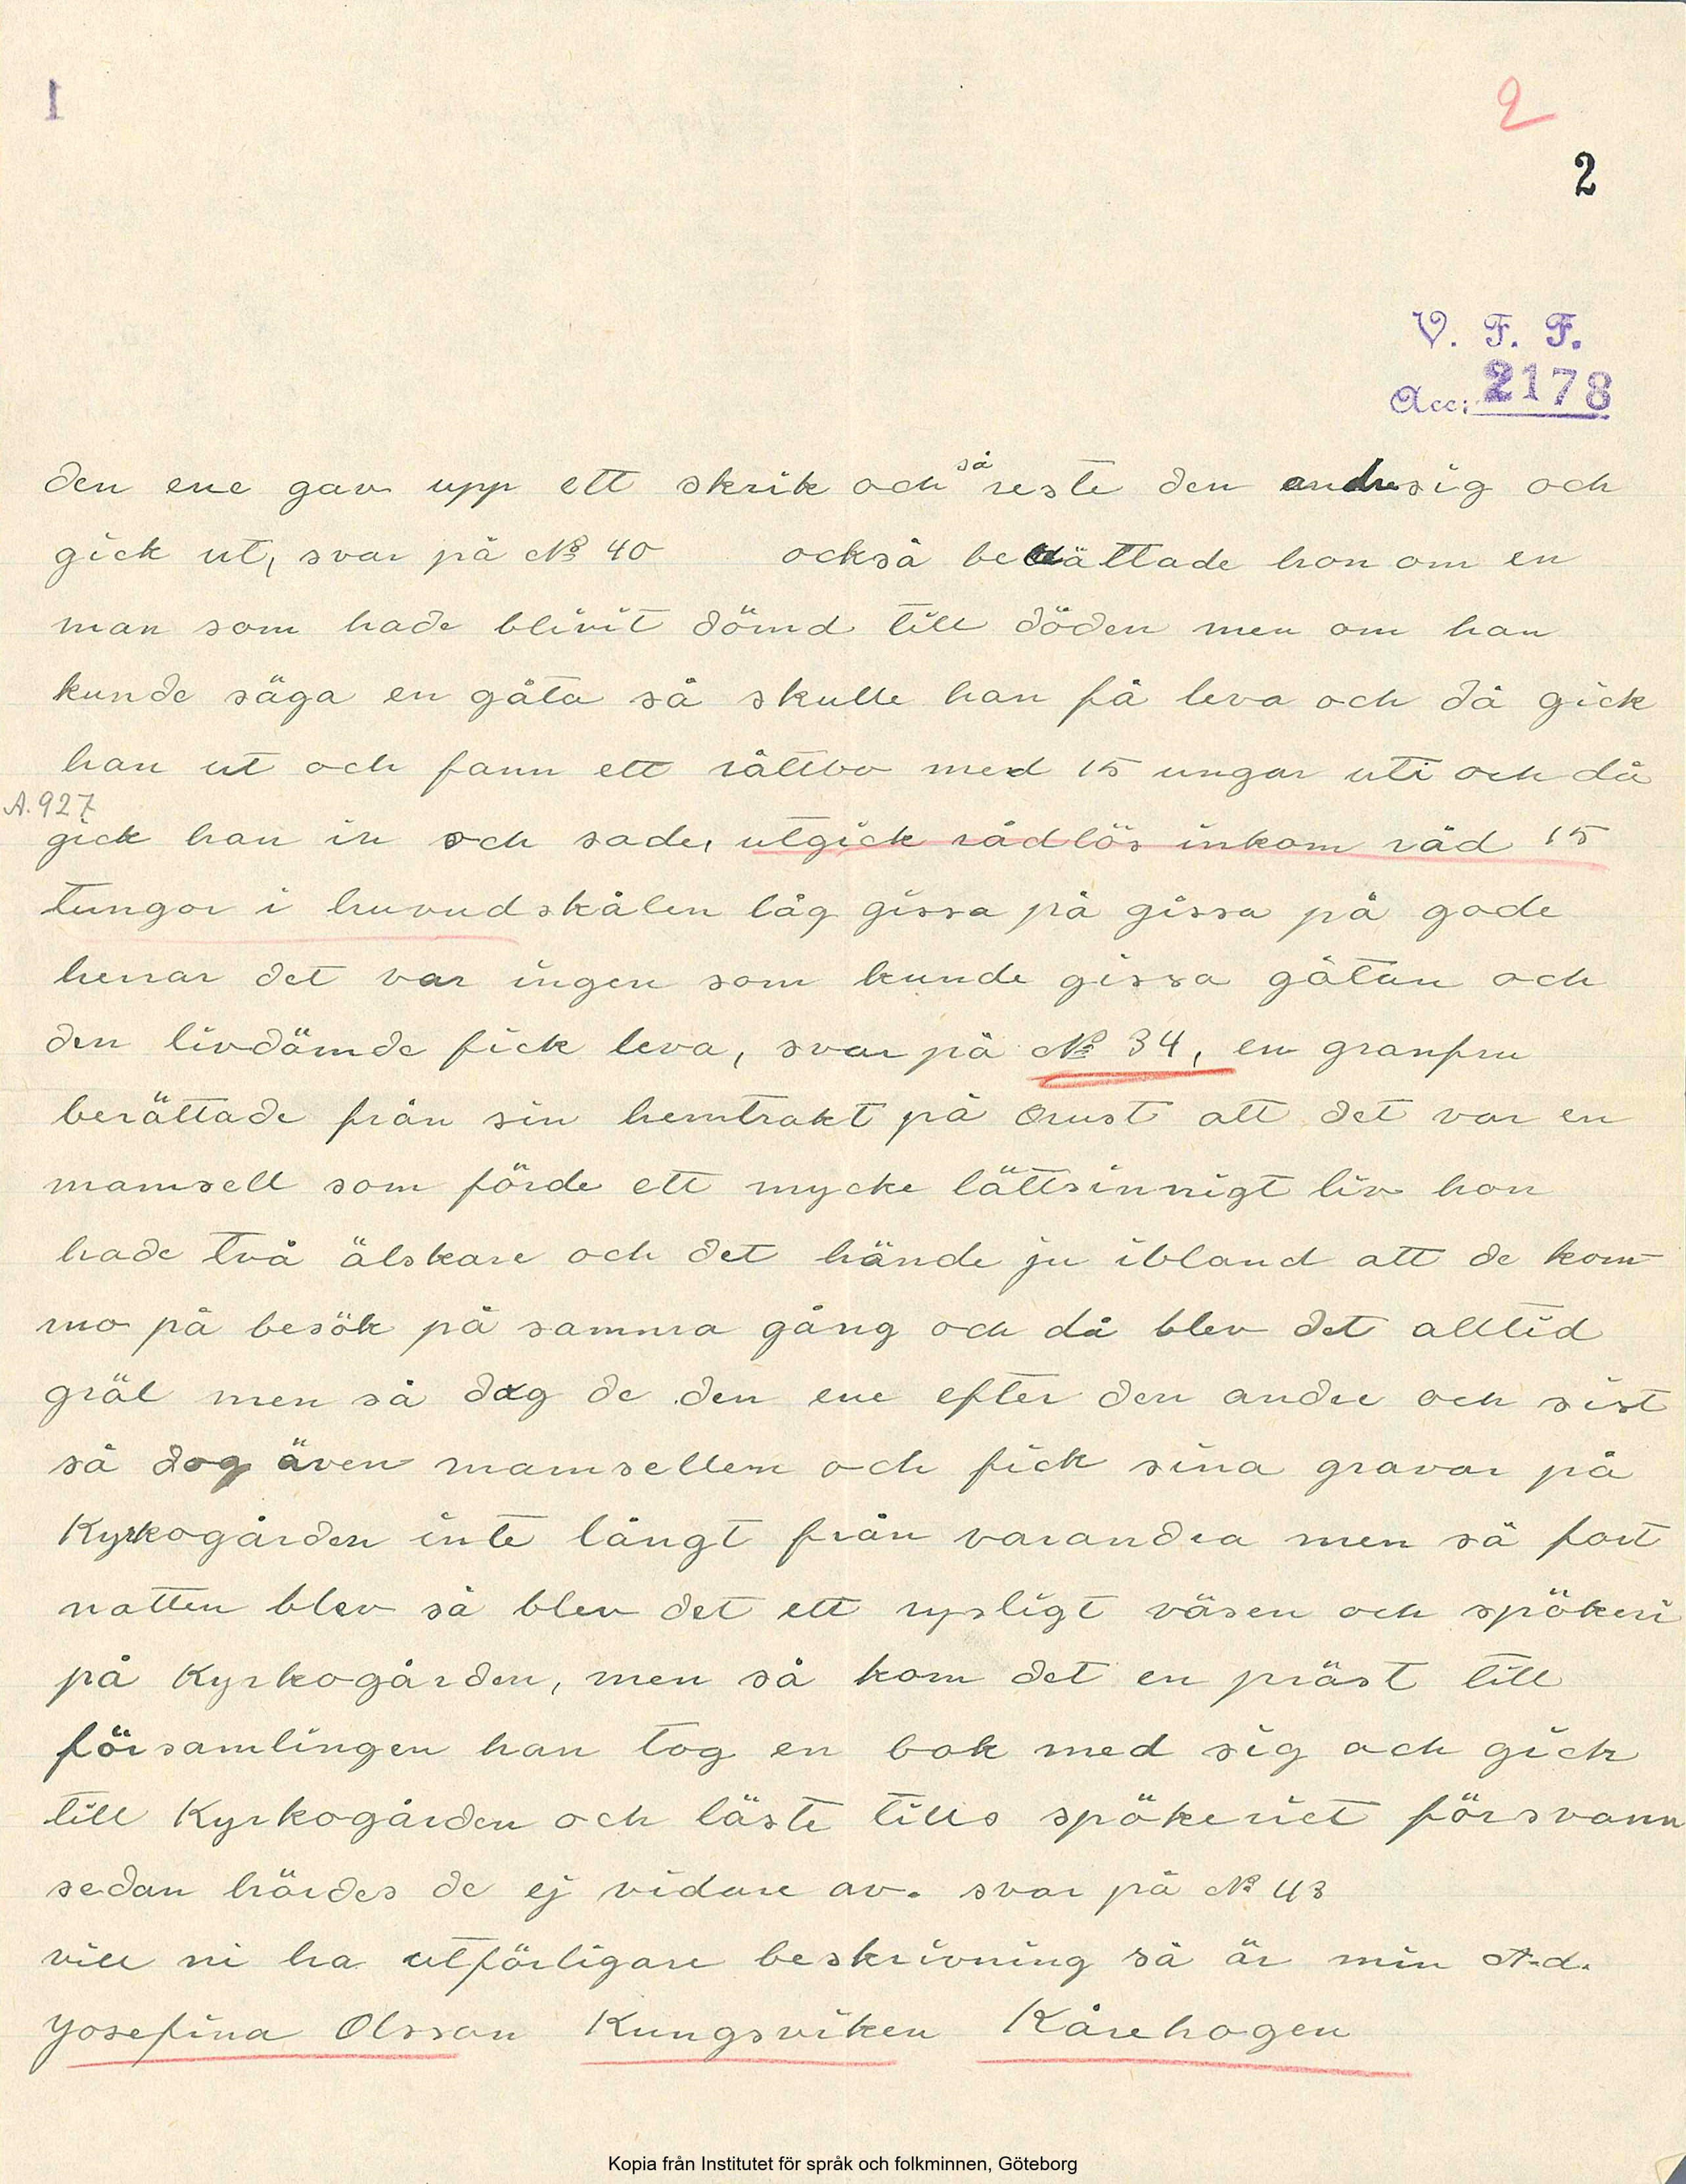 1
2
2
V. F. F.
Acc: 2178
så
den ene gav upp ett skrik och reste den andresig och
gick ut, svar på No 40 också berättade hon om en
man som hade blivit dömd till döden men om han
kunde säga en gåta så skulle han få leva och då gick
han ut och fann ett råttbo med 15 ungar uti och då
A. 927
gick han in och sade, utgick rådlös inkom råd 15
tungor i huvudskålen låg gissa på gissa på gode
herrar det var ingen som kunde gissa gåtan och
den livdömde fick leva, svar på No 34, en granfru
berättade från sin hemtrakt på Orust att det var en
mamsell som förde ett mycke lättsinnigt liv hon
hade två älskare och det hände ju ibland att de kom-
mo på besök på samma gång och då blev det alltid
gräl men så dog de den ene efter den andre och sist
så dog även mamsellen och fick sina gravar på
Kyrkogården inte långt från varandra men så fort
natten blev så blev det ett rysligt väsen och spökeri
på Kyrkogården, men så kom det en präst till
församlingen han tog en bok med sig och gick
till Kyrkogården och läste tills spökeriet försvann
sedan hördes de ej vidare av. svar på No 43
vill ni ha utförligare beskrivning så är min A.d.
Josefina Olsson Kungsviken Kårehogen
Kopia från Institutet för språk och folkminnen, Göteborg